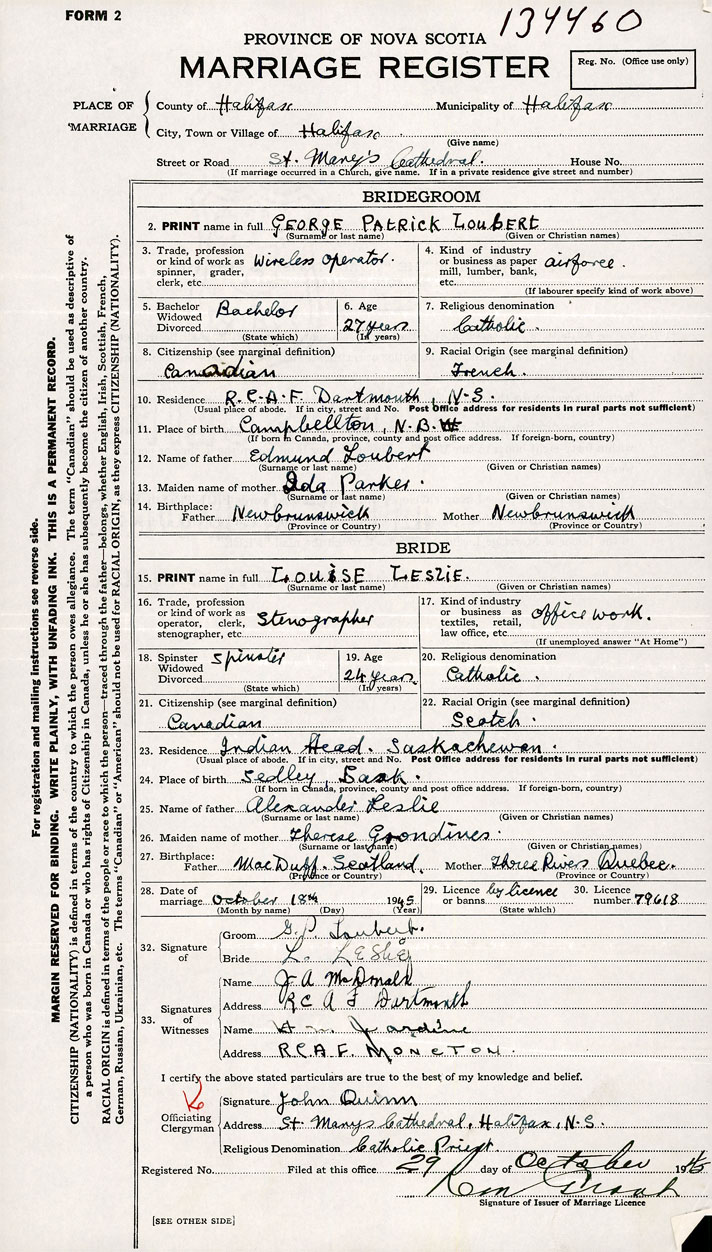 FORM 2
134460
PROVINCE OF NOVA SCOTIA
MARRIAGE REGISTER
Reg. No. (Office use only)
PLACE OF MARRIAGE
County of Halifax Municipality of Halifax
City, Town or Village of Halifax
(Give name)
Street or Road St. Mary's Cathedral. House No.
(If marriage occurred in a Church, give name. If in a private residence give street and number)
BRIDEGROOM
2. PRINT name in full GEORGE PATRICK LOUBERT
(Surname or last name) (Given or Christian names)
3. Trade, profession or kind of work as spinner, grader, clerk, etc. Wireless operator.
4. Kind of industry or business as paper mill, lumber, bank, etc. airforce.
(If labourer specify kind of work above)
5. Bachelor Widowed Divorced Bachelor
(State which)
6. Age 27 years
(In years)
7. Religious denomination
Catholic.
8. Citizenship (see marginal definition)
Canadian
9. Racial Origin (see marginal definition)
French.
10. Residence R.C.A.F. Dartmouth, N.S.
(Usual place of abode. If in city, street and No. Post Office address for residents in rural parts not sufficient)
11. Place of birth Campbellton, N.B.
(If born in Canada, province, county and post office address. If foreign-born, country)
12. Name of father Edmund Loubert
(Surname or last name) (Given or Christian names)
13. Maiden name of mother Ida Parker.
(Surname or last name) (Given or Christian names)
14. Birthplace: Father Newbrunswick Mother Newbrunswick
(Province or Country) (Province or Country)
BRIDE
15. PRINT name in full LOUISE LESLIE.
(Surname or last name) (Given or Christian names)
16. Trade, profession or kind of work as operator, clerk, stenographer, etc. Stenographer
17. Kind of industry or business as textiles, retail, law office, etc. office work.
(If unemployed answer "At Home")
18. Spinster Widowed Divorced Spinster
(State which)
19. Age 24 years
(In years)
20. Religious denomination
Catholic.
21. Citizenship (see marginal definition)
Canadian
22. Racial Origin (see marginal definition)
Scotch.
23. Residence Indian Head. Saskachewan.
(Usual place of abode. If in city, street and No. Post Office address for residents in rural parts not sufficient)
24. Place of birth Sedley, Sask.
(If born in Canada, province, county and post office address. If foreign-born, country)
25. Name of father Alexander Leslie
(Surname or last name) (Given or Christian names)
26. Maiden name of mother Therese Grondines.
(Surname or last name) (Given or Christian names)
27. Birthplace: Father MacDuff. Scotland. Mother Three Rivers Quebec.
(Province or Country) (Province or Country)
28. Date of marriage October 18th 1945
(Month by name) (Day) (Year)
29. Licence or banns by licence
(State which)
30. Licence number 79618
32. Signature of
Groom G.P. Loubert.
Bride L. LESLIE
33. Signatures of Witnesses
Name J A McDonald
Address R C A F Dartmouth
Name Jardine
Address R.C.A.F. MONCTON.
I certify the above stated particulars are true to the best of my knowledge and belief.
Officiating Clergyman
Signature John Quinn
Address St. Marys Cathedral, Halifax, N.S.
Religious Denomination Catholic Priest.
Registered No. Filed at this office 29 day of October 1945
Signature of Issuer of Marriage Licence
[SEE OTHER SIDE]
For registration and mailing instructions see reverse side.
MARGIN RESERVED FOR BINDING. WRITE PLAINLY, WITH UNFADING INK. THIS IS A PERMANENT RECORD.
CITIZENSHIP (NATIONALITY) is defined in terms of the country to which the person owes allegiance. The term "Canadian" should be used as descriptive of
a person who was born in Canada or who has rights of Citizenship in Canada, unless he or she has subsequently become the citizen of another country.
RACIAL ORIGIN is defined in terms of the people or race to which the person—traced through the father—belongs, whether English, Irish, Scottish, French,
German, Russian, Ukrainian, etc. The terms "Canadian" or "American" should not be used for RACIAL ORIGIN, as they express CITIZENSHIP (NATIONALITY).